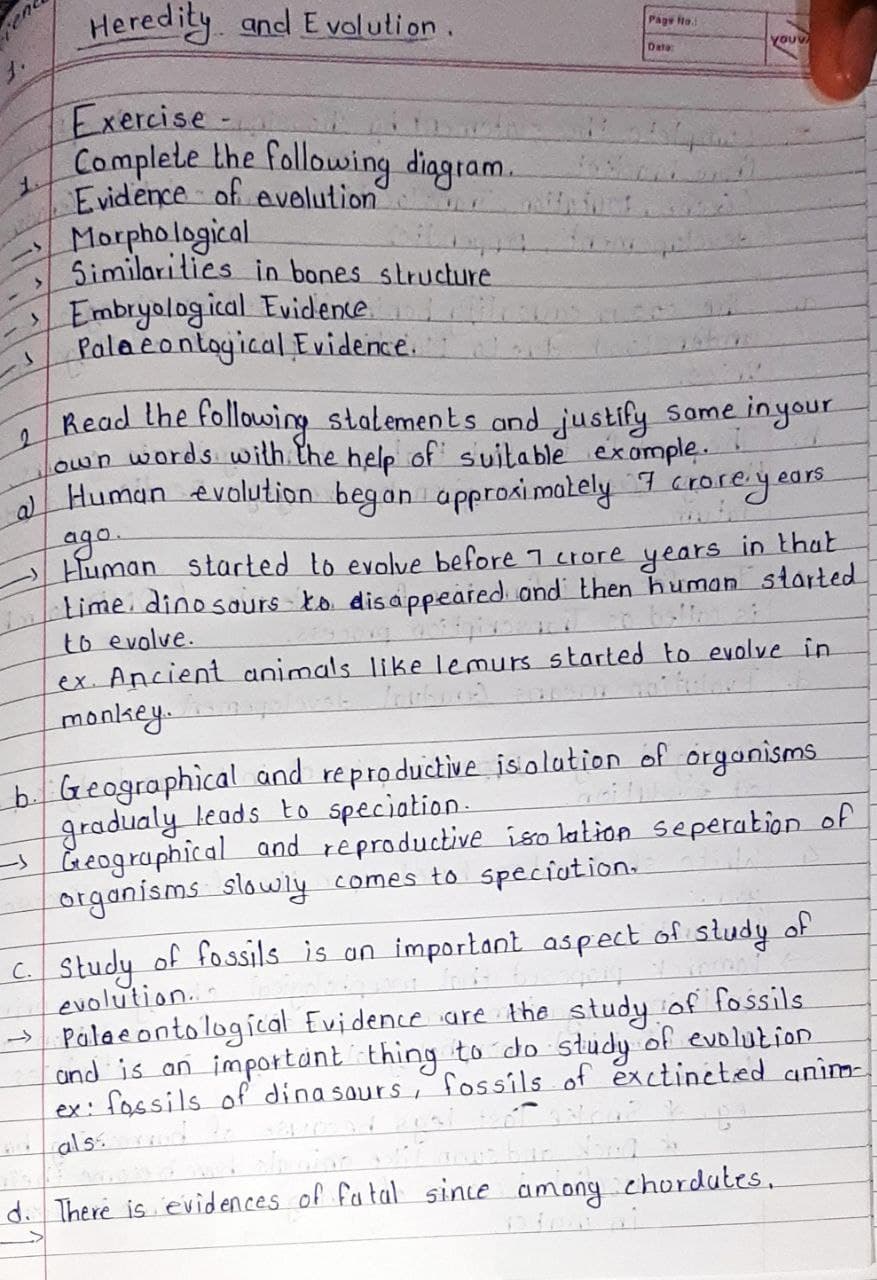 Heredity and Evolution.
Page No.:
Date:
1.
Exercise -
1. Complete the following diagram.
Evidence of evolution
→ Morphological
→ Similarities in bones structure
→ Embryological Evidence
→ Palaeontogical Evidence.
2 Read the following statements and justify same in your
own words with the help of suitable example.
a) Human evolution began approximately 7 crore years
ago.
→ Human started to evolve before 7 crore years in that
time. dinosaurs to disappeared and then human started
to evolve.
ex. Ancient animals like lemurs started to evolve in
monkey.
b. Geographical and reproductive isolation of organisms
gradualy leads to speciation.
→ Geographical and reproductive isolation seperation of
organisms slowly comes to speciation.
c. Study of fossils is an important aspect of study of
evolution.
→ Palaeontological Evidence are the study of fossils
and is an important thing to do study of evolution
ex: fossils of dinasaurs, fossils of exctincted anim-
als.
d. There is evidences of fatal since among chordates.
→